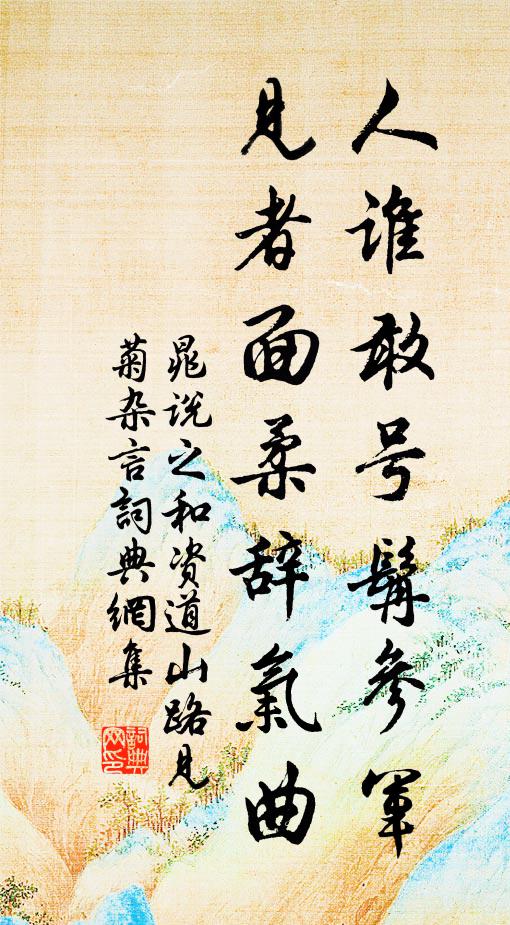 人谁敢号髯参军
见者面柔辞氣曲
晁说之和资道山路见
菊杂言詞典網集
詞典
网印